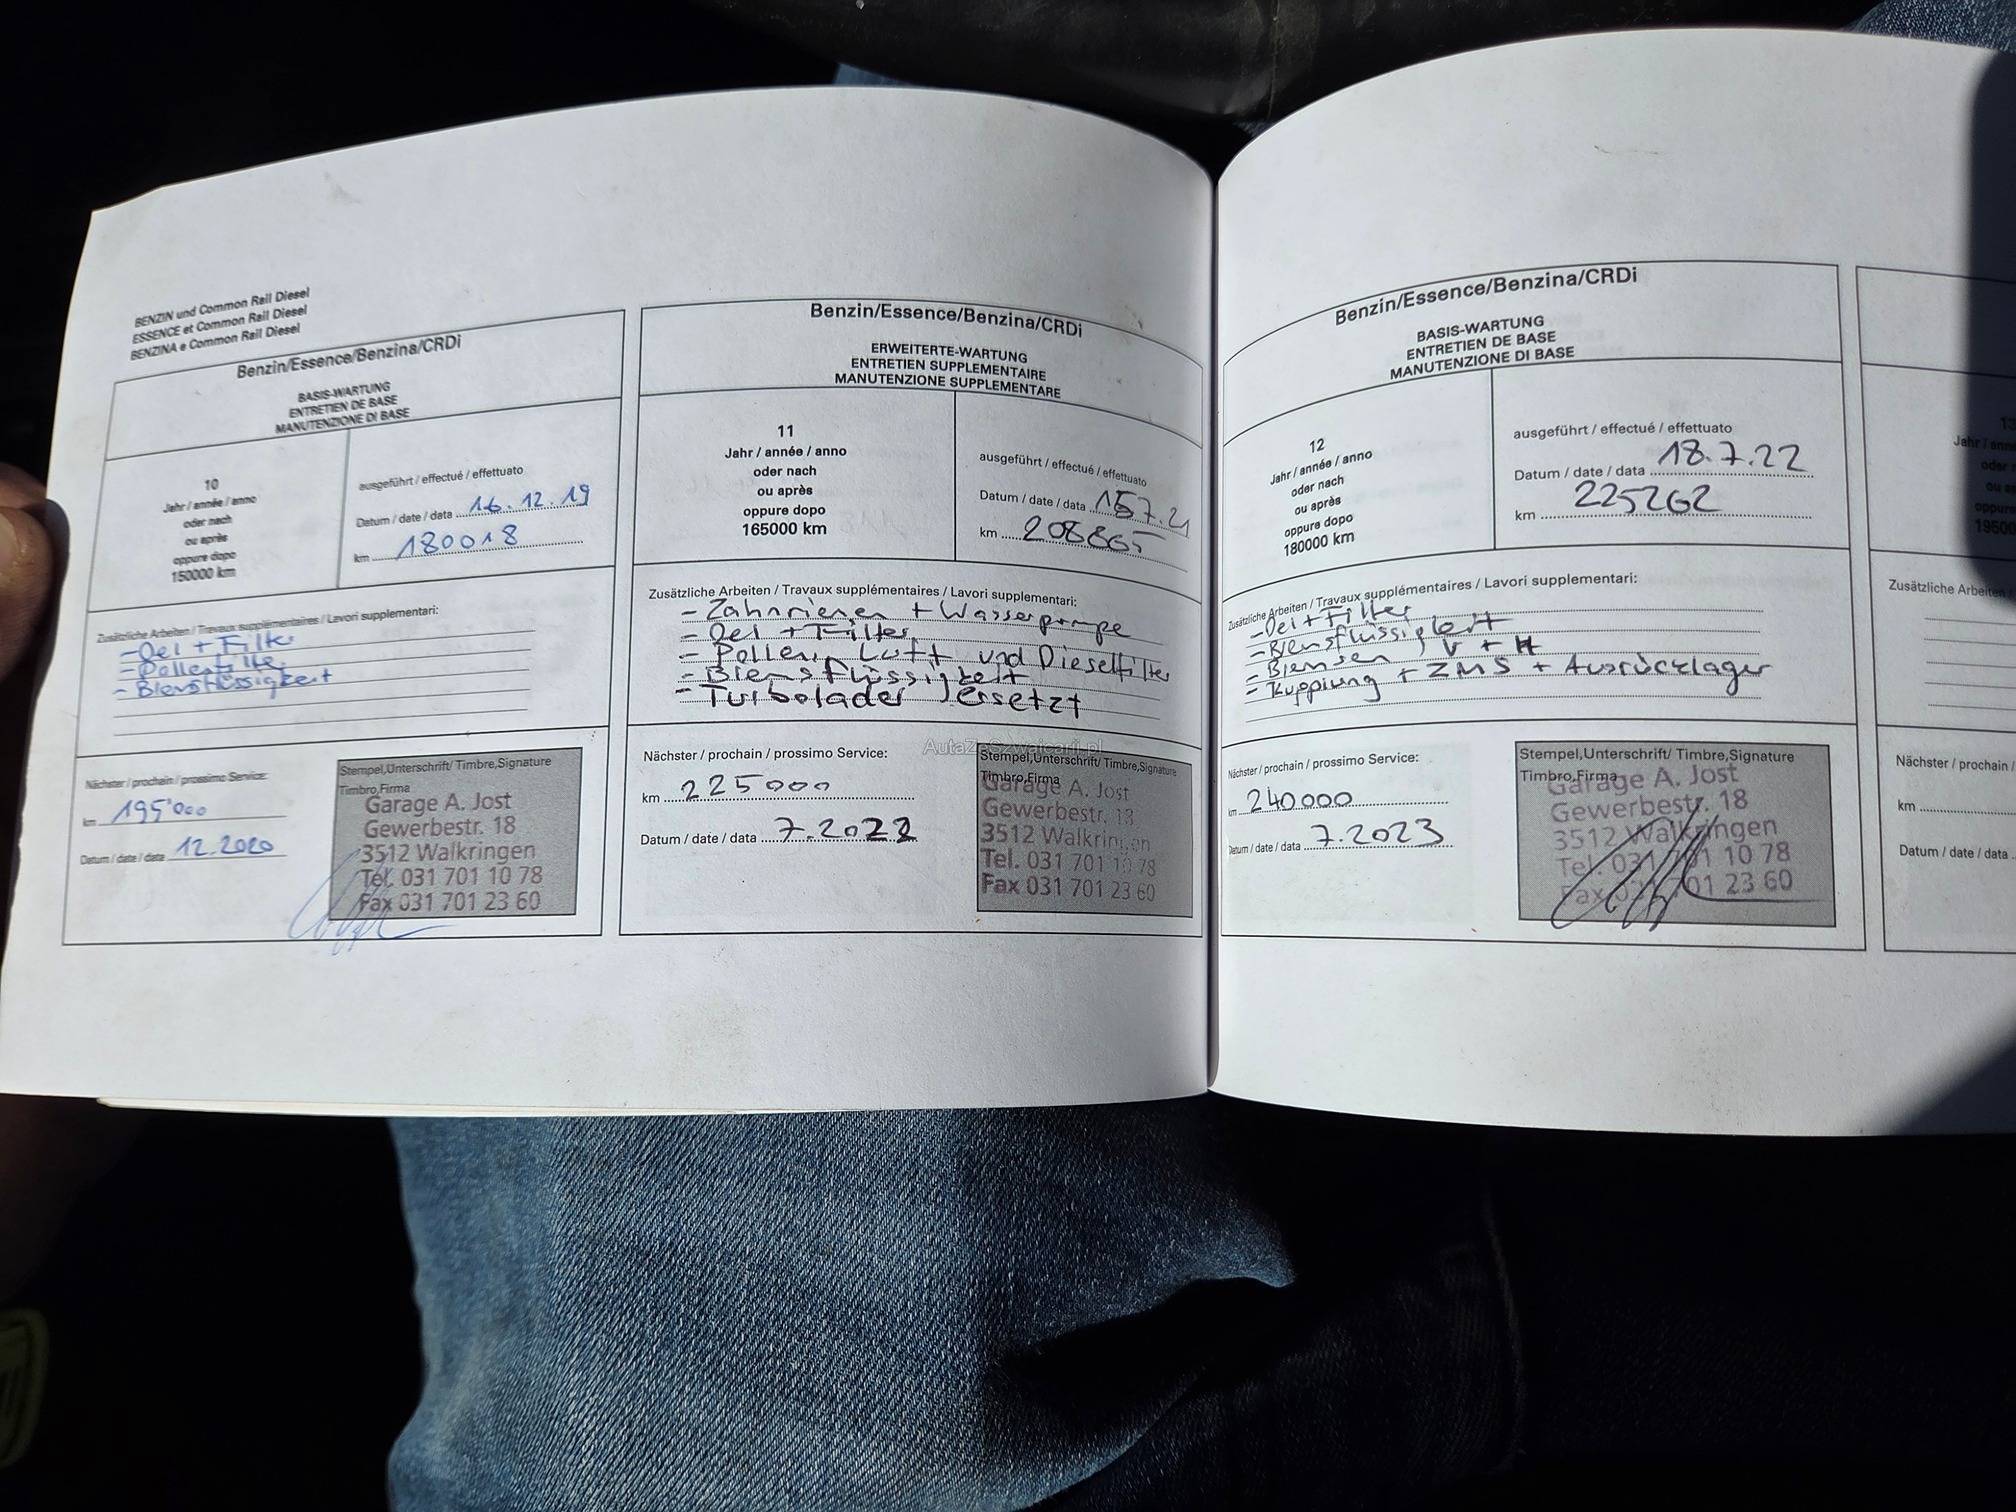 BENZIN und Common Rail Diesel
ESSENCE et Common Rail Diesel
BENZINA e Common Rail Diesel
Benzin/Essence/Benzina/CRDi
BASIS-WARTUNG
ENTRETIEN DE BASE
MANUTENZIONE DI BASE
10
Jahr / année / anno
oder nach
ou après
oppure dopo
150000 km
ausgeführt / effectué / effettuato
Datum / date / data 16.12.19
km 180018
Zusätzliche Arbeiten / Travaux supplémentaires / Lavori supplementari:
- Oel + Filter
- Pollenfilter
- Bremsflüssigkeit
Nächster / prochain / prossimo Service:
km 195'000
Datum / date / data 12.2020
Stempel,Unterschrift/ Timbre,Signature
Timbro,Firma
Garage A. Jost
Gewerbestr. 18
3512 Walkringen
Tel. 031 701 10 78
Fax 031 701 23 60
Benzin/Essence/Benzina/CRDi
ERWEITERTE-WARTUNG
ENTRETIEN SUPPLEMENTAIRE
MANUTENZIONE SUPPLEMENTARE
11
Jahr / année / anno
oder nach
ou après
oppure dopo
165000 km
ausgeführt / effectué / effettuato
Datum / date / data 15.7.21
km 208865
Zusätzliche Arbeiten / Travaux supplémentaires / Lavori supplementari:
- Zahnriemen + Wasserpumpe
- Oel + Filter
- Pollen, Luft und Dieselfilter
- Bremsflüssigkeit
- Turbolader ersetzt
Nächster / prochain / prossimo Service:
km 225000
Datum / date / data 7.2022
AutaZeSzwajcarii.pl
Stempel,Unterschrift/ Timbre,Signature
Timbro,Firma
Garage A. Jost
Gewerbestr. 18
3512 Walkringen
Tel. 031 701 10 78
Fax 031 701 23 60
Benzin/Essence/Benzina/CRDi
BASIS-WARTUNG
ENTRETIEN DE BASE
MANUTENZIONE DI BASE
12
Jahr / année / anno
oder nach
ou après
oppure dopo
180000 km
ausgeführt / effectué / effettuato
Datum / date / data 18.7.22
km 225262
Zusätzliche Arbeiten / Travaux supplémentaires / Lavori supplementari:
- Oel + Filter
- Bremsflüssigkeit
- Bremsen V + H
- Kupplung + ZMS + Ausrücklager
Nächster / prochain / prossimo Service:
km 240000
Datum / date / data 7.2023
Stempel,Unterschrift/ Timbre,Signature
Timbro,Firma
Garage A. Jost
Gewerbestr. 18
3512 Walkringen
Tel. 031 701 10 78
Fax 031 701 23 60
13
Jahr /
oder
Zusätzliche Arbeiten /
Nächster / prochain /
km
Datum / date / data